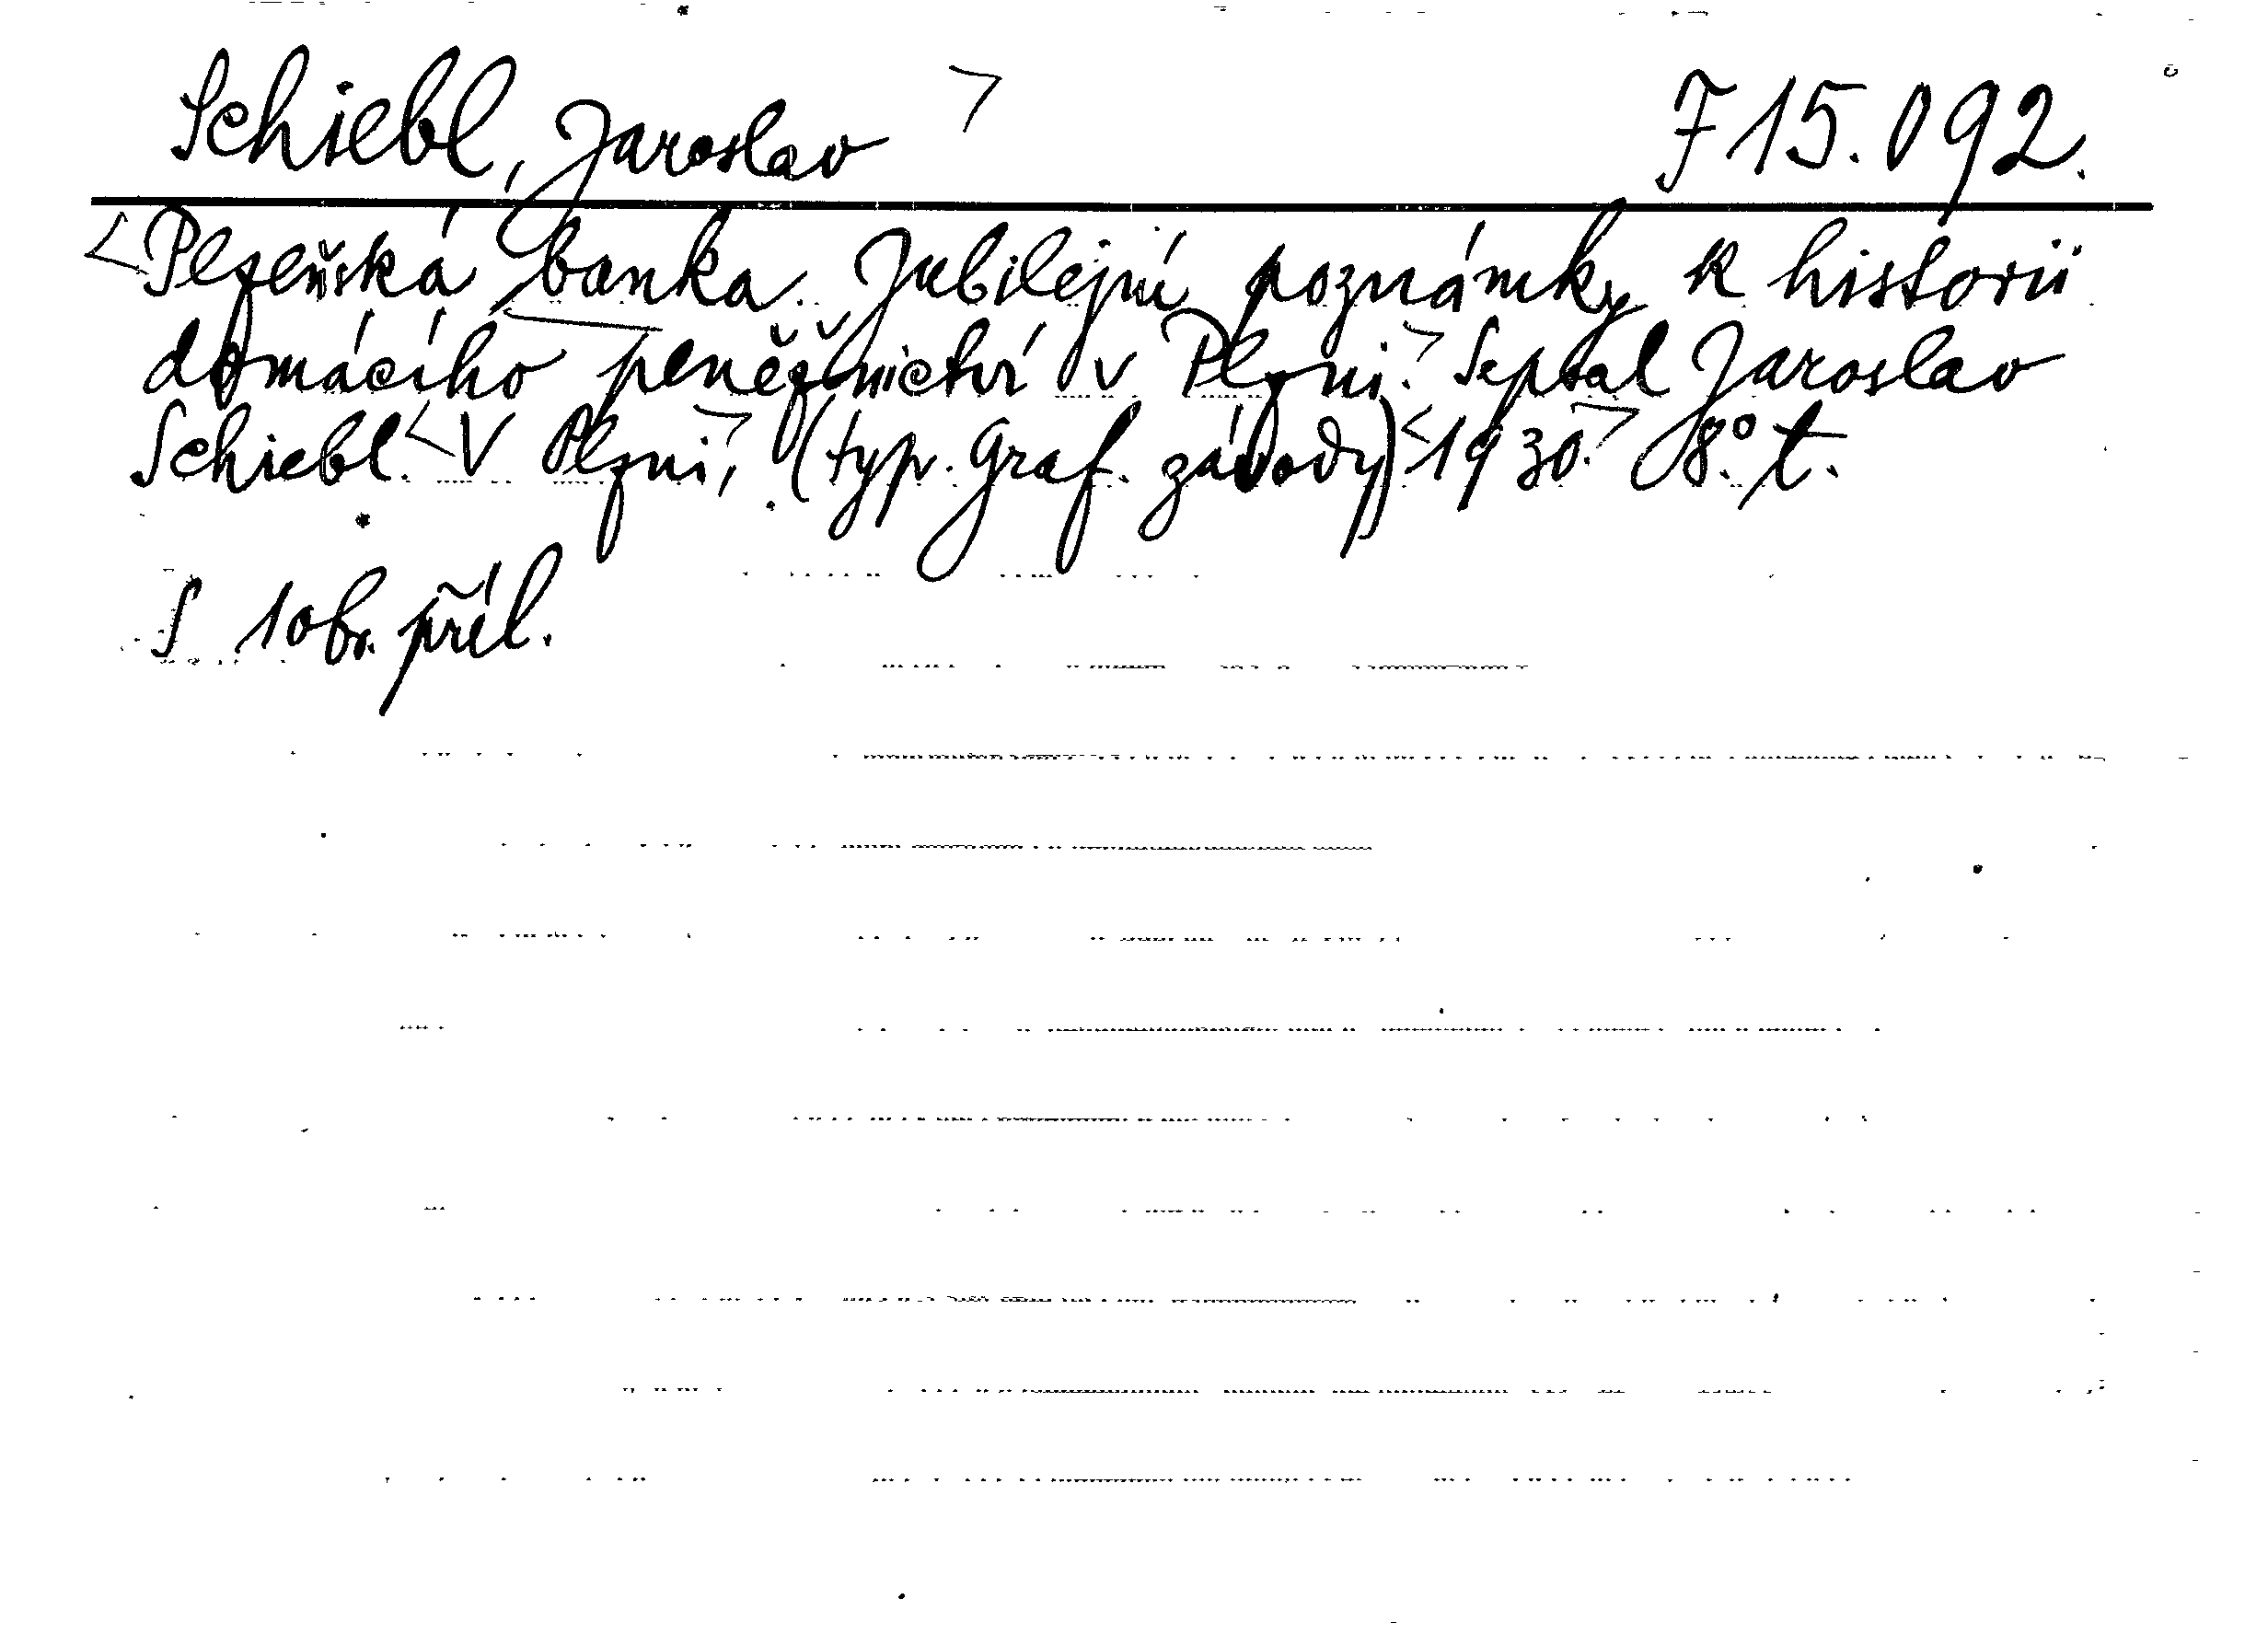 Schiebl, Jaroslav F 15.092.
Plzeňská banka. Jubilejní poznámky k historii
domácího peněžnictví v Plzni. Sepsal Jaroslav
Schiebl. V Plzni, (typ. Graf. závody) 1930. 8°. t.
S 1 obr. příl.